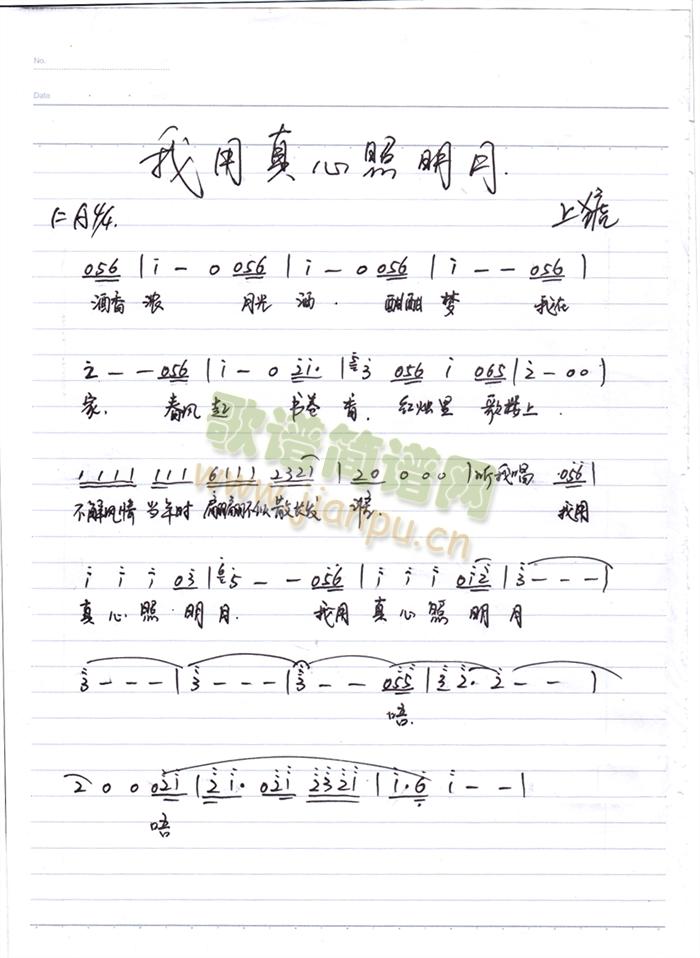 No.
Date
我用真心照明月.
1=A 4/4.
056 | i - 0 056 | i - 0 056 | i - - 056 |
酒香浓 月光洒. 酣酣梦 我在
2 - - 056 | i - 0 2i. | 3 056 i 065 | 2 - 0 0 |
家. 春风起 书卷香. 红烛里 歌楼上.
1111 111 6111 2321 | 20 0 0 0 | 听我唱 056 |
不解风情 当年时 翩翩不似散长发 谁. 我用
i i i 03 | 65 - - 056 | i i i 0i2 | 3 - - - |
真心照明月. 我用真心照明月
3 - - - | 3 - - - | 3 - - 055 | 3 2. 2 - - |
唔.
2 0 0 02i | 2i. 02i 232i | i.6 i - - |
唔
歌谱简谱网
www.jianpu.cn